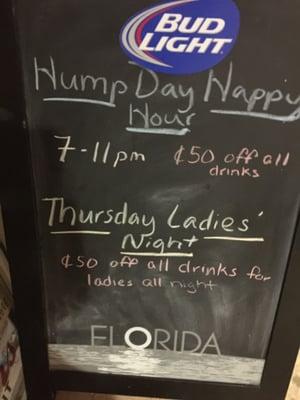 BUD
LIGHT
Hump Day Happy
Hour
7-11pm ¢50 off all
drinks
Thursday Ladies'
Night
¢50 off all drinks for
ladies all night
FLORIDA